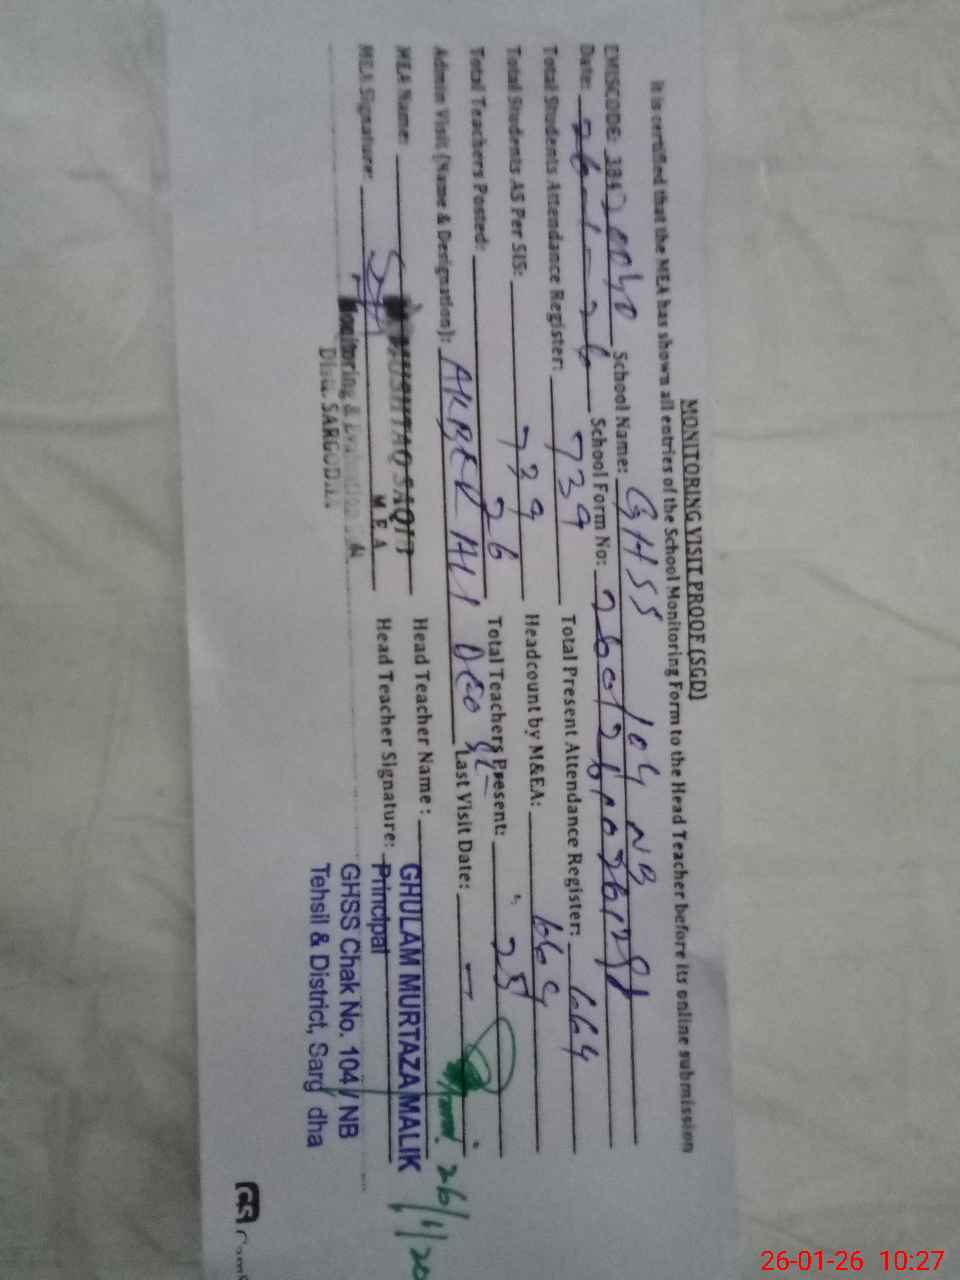 MONITORING VISIT PROOF (SGD)
It is certified that the MEA has shown all entries of the School Monitoring Form to the Head Teacher before its online submission
EMISCODE: 38420040 School Name: GHSS 104 NB
Date: 26-1-26 School Form No:
Total Students Attendance Register: 739 Total Present Attendance Register: 664
Total Students AS Per SIS: 739 Headcount by M&EA: 664
Total Teachers Posted: 26 Total Teachers Present: 25
Admin Visit (Name & Designation): AKBER ALI DEO SE Last Visit Date: —
MEA Name: MUSHTAQ SAQIB Head Teacher Name: GHULAM MURTAZA MALIK
M E A
MEA Signature: Head Teacher Signature: Principal
Monitoring & Evaluation
GHSS Chak No. 104 / NB
Distt. SARGODHA
Tehsil & District, Sarg dha
26/1/20
CS
26-01-26 10:27